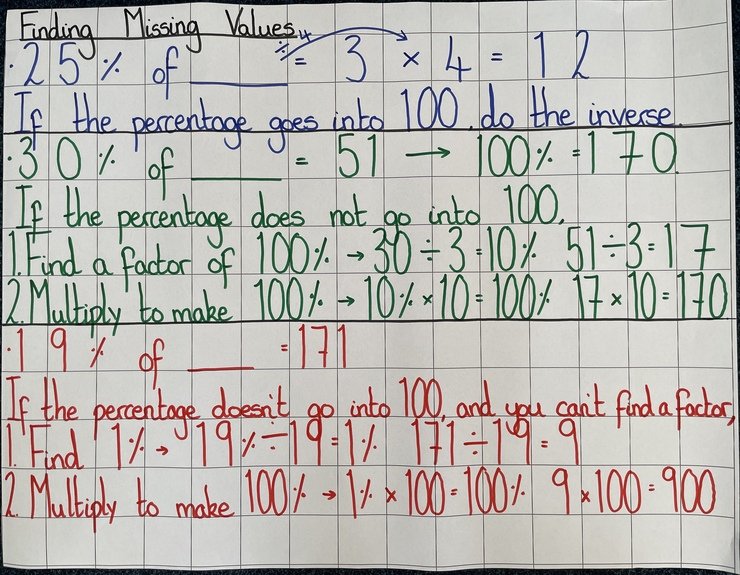 Finding Missing Values
÷4
·25% of ____ = 3 × 4 = 12
If the percentage goes into 100, do the inverse.
·30% of ____ = 51 → 100% = 170.
If the percentage does not go into 100,
1. Find a factor of 100% → 30÷3=10% 51÷3=17
2. Multiply to make 100% → 10%×10=100% 17×10=170
·19% of ____ =171
If the percentage doesn't go into 100, and you can't find a factor,
1. Find 1% → 19%÷19=1% 171÷19=9
2. Multiply to make 100% → 1% × 100=100% 9×100=900